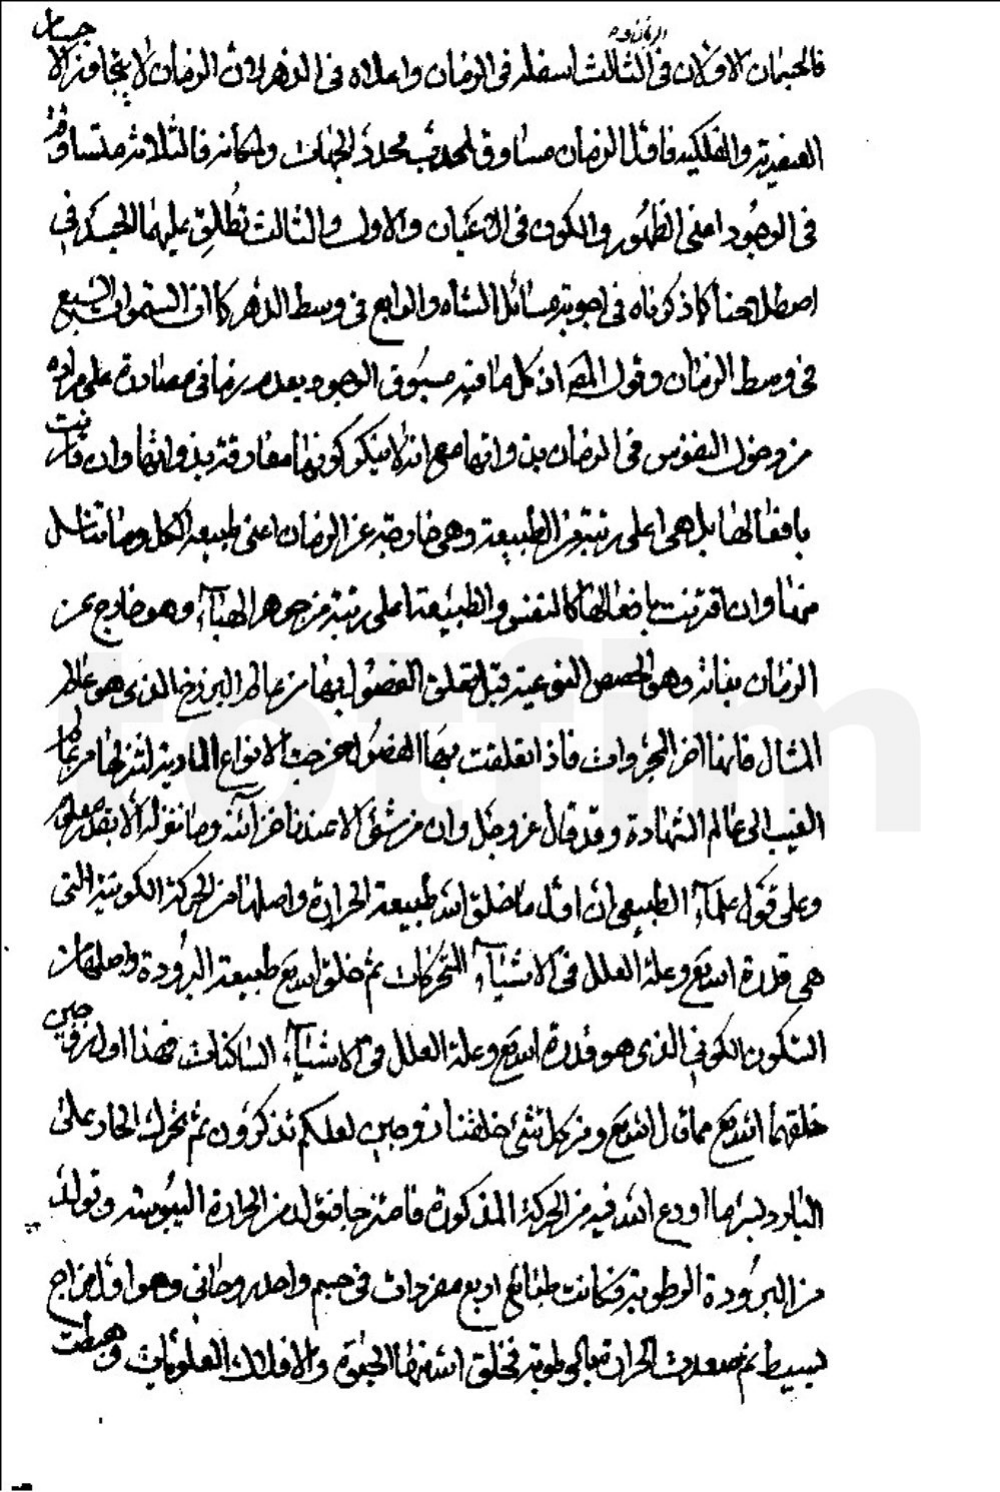 فالجسمان الاولان في الثالث اسفله في الزمان واعلاه في الدهر لان الزمان لا يتجاوز الاجسام
العنصرية والفلكية فاول الزمان مساوق لمحدب محدد الجهات ومكانه فالثلاثة متساوقة
في الوجود اعني الظهور والكون في الاعيان والاول والثالث نطلق عليهما الجسد في
اصطلاحنا كما ذكرناه في اجوبة مسائل الشاه والرابع في وسط الدهر كما ان السموات السبع
في وسط الزمان وقول المص اذ كل ما فيه مسبوق الوجود بعدم زماني مصادرة على مراده
من دخول النفوس في الزمان بذواتها مع انه لا ينكر كونها مفارقة بذواتها وان قارنت
بافعالها بل هي اعلى رتبة من الطبيعة وهي خارجة عن الزمان اعني طبيعة الكل وما تناسل
منها وان اقترنت بافعالها كالنفس والطبيعة اعلى رتبة من جوهر الهباء وهو خارج عن
الزمان بذاته وهو الحصص النوعية قبل تعلق الفصول بها من عالم البرزخ الذي هو عالم
المثال فانها اخر المجردات فاذا تعلقت بها الفصول خرجت الانواع المادية لتنزلها من عالم
الغيب الى عالم الشهادة وقد قال عز وجل وان من شئ الا عندنا خزائنه وما ننزله الا بقدر معلوم
وعلى قول علماء الطبيعي ان اول ما خلق الله طبيعة الحرارة واصلها من الحركة الكونية التي
هي قدرة الله تع وعلة العلل في الاشياء المتحركات ثم خلق الله تع طبيعة البرودة واصلها من
السكون الكوني الذي هو قدرة الله تع وعلة العلل في الاشياء الساكنات فهذا اول زوجين
خلقهما الله تع مما قال الله تع ومن كل شئ خلقنا زوجين لعلكم تذكرون ثم تحرك الحار على
البارد بسر ما اودع الله فيه من الحركة المذكورة فامتزجا فتولد من الحرارة اليبوسة وتولد
من البرودة الرطوبة فكانت طبائع اربع مفردات في جسم واحد روحاني وهو اول مزاج
بسيط ثم صعدت الحرارة بالرطوبة فخلق الله منها الحيوة والافلاك العلويات وهبطت